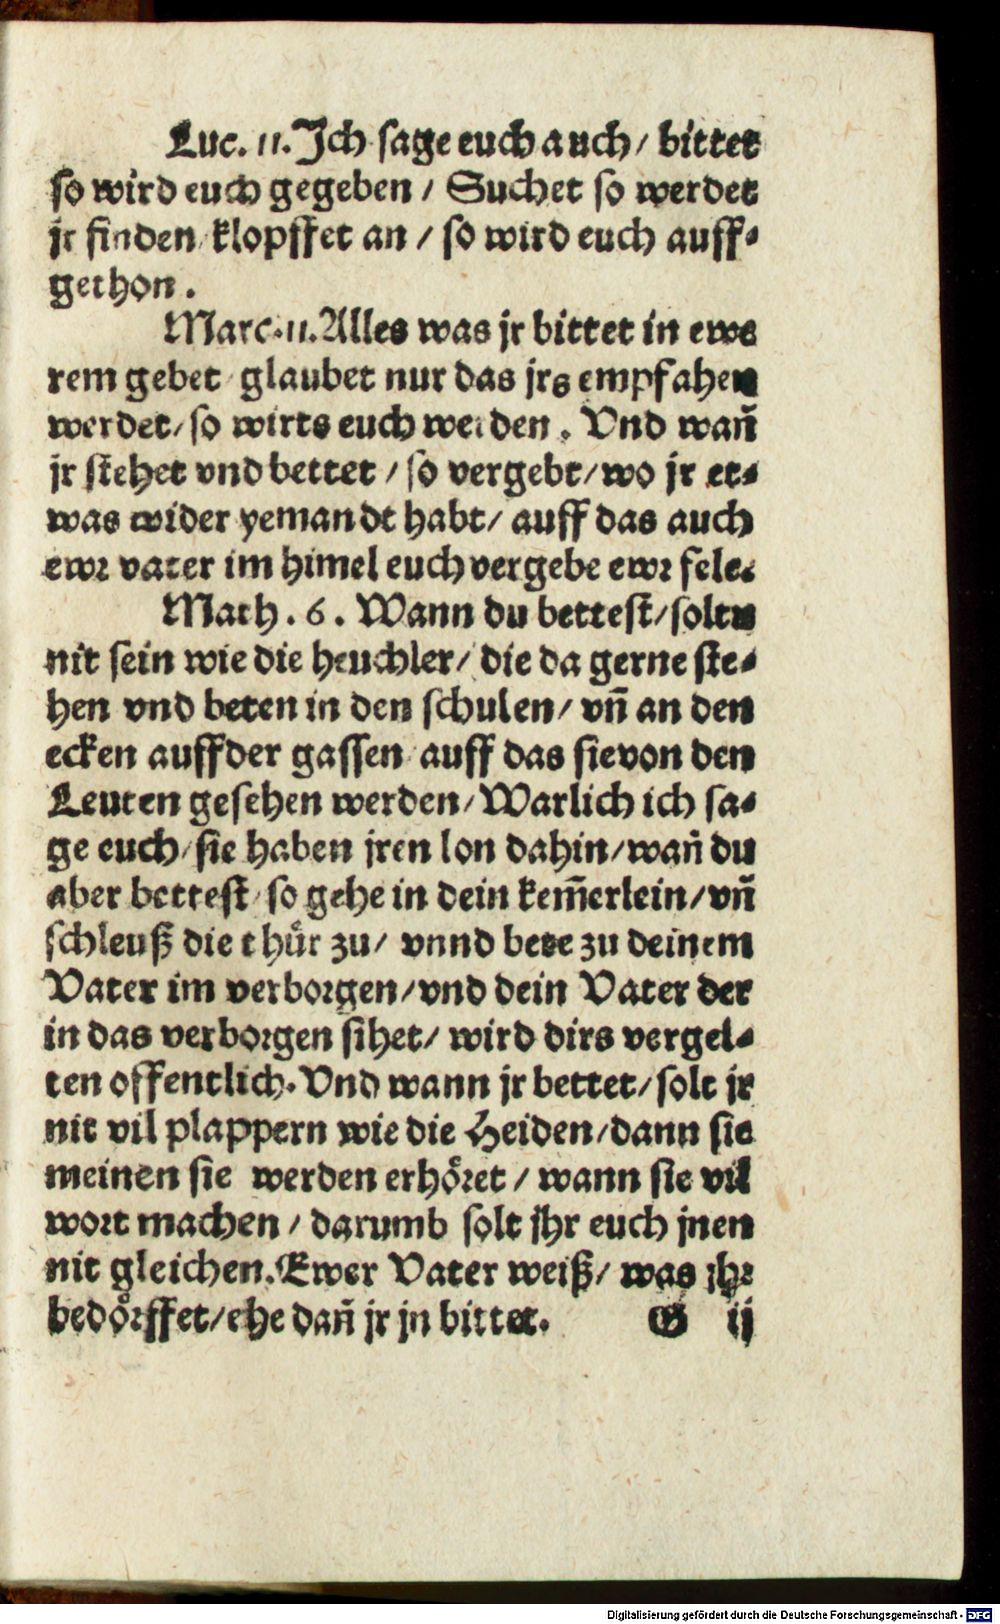 Luc. 11. Jch sage euch auch / bittet
so wird euch gegeben / Suchet so werdet
jr finden / klopffet an / so wird euch auff-
gethon.
Marc. 11. Alles was jr bittet in ewe
rem gebet / glaubet nur das jrs empfahen
werdet / so wirts euch werden. Vnd wañ
jr stehet vnd bettet / so vergebt / wo jr et-
was wider yemandt habt / auff das auch
ewr vater im himel euch vergebe ewr fele.
Math. 6. Wann du bettest / soltu
nit sein wie die heuchler / die da gerne ste-
hen vnd beten in den schulen / vñ an den
ecken auff der gassen / auff das sie von den
Leuten gesehen werden / Warlich ich sa-
ge euch / sie haben jren lon dahin / wañ du
aber bettest / so gehe in dein kem̃erlein / vñ
schleuß die thuͤr zu / vnnd bete zu deinem
Vater im verborgen / vnd dein Vater der
in das verborgen sihet / wird dirs vergel-
ten offentlich. Vnd wann jr bettet / solt jr
nit vil plappern wie die Heiden / dann sie
meinen sie werden erhoͤret / wann sie vil
wort machen / darumb solt jhr euch jnen
nit gleichen. Ewer Vater weiß / was jhr
bedoͤrffet / ehe dañ jr jn bittet. G ij
Digitalisierung gefördert durch die Deutsche Forschungsgemeinschaft - DFG